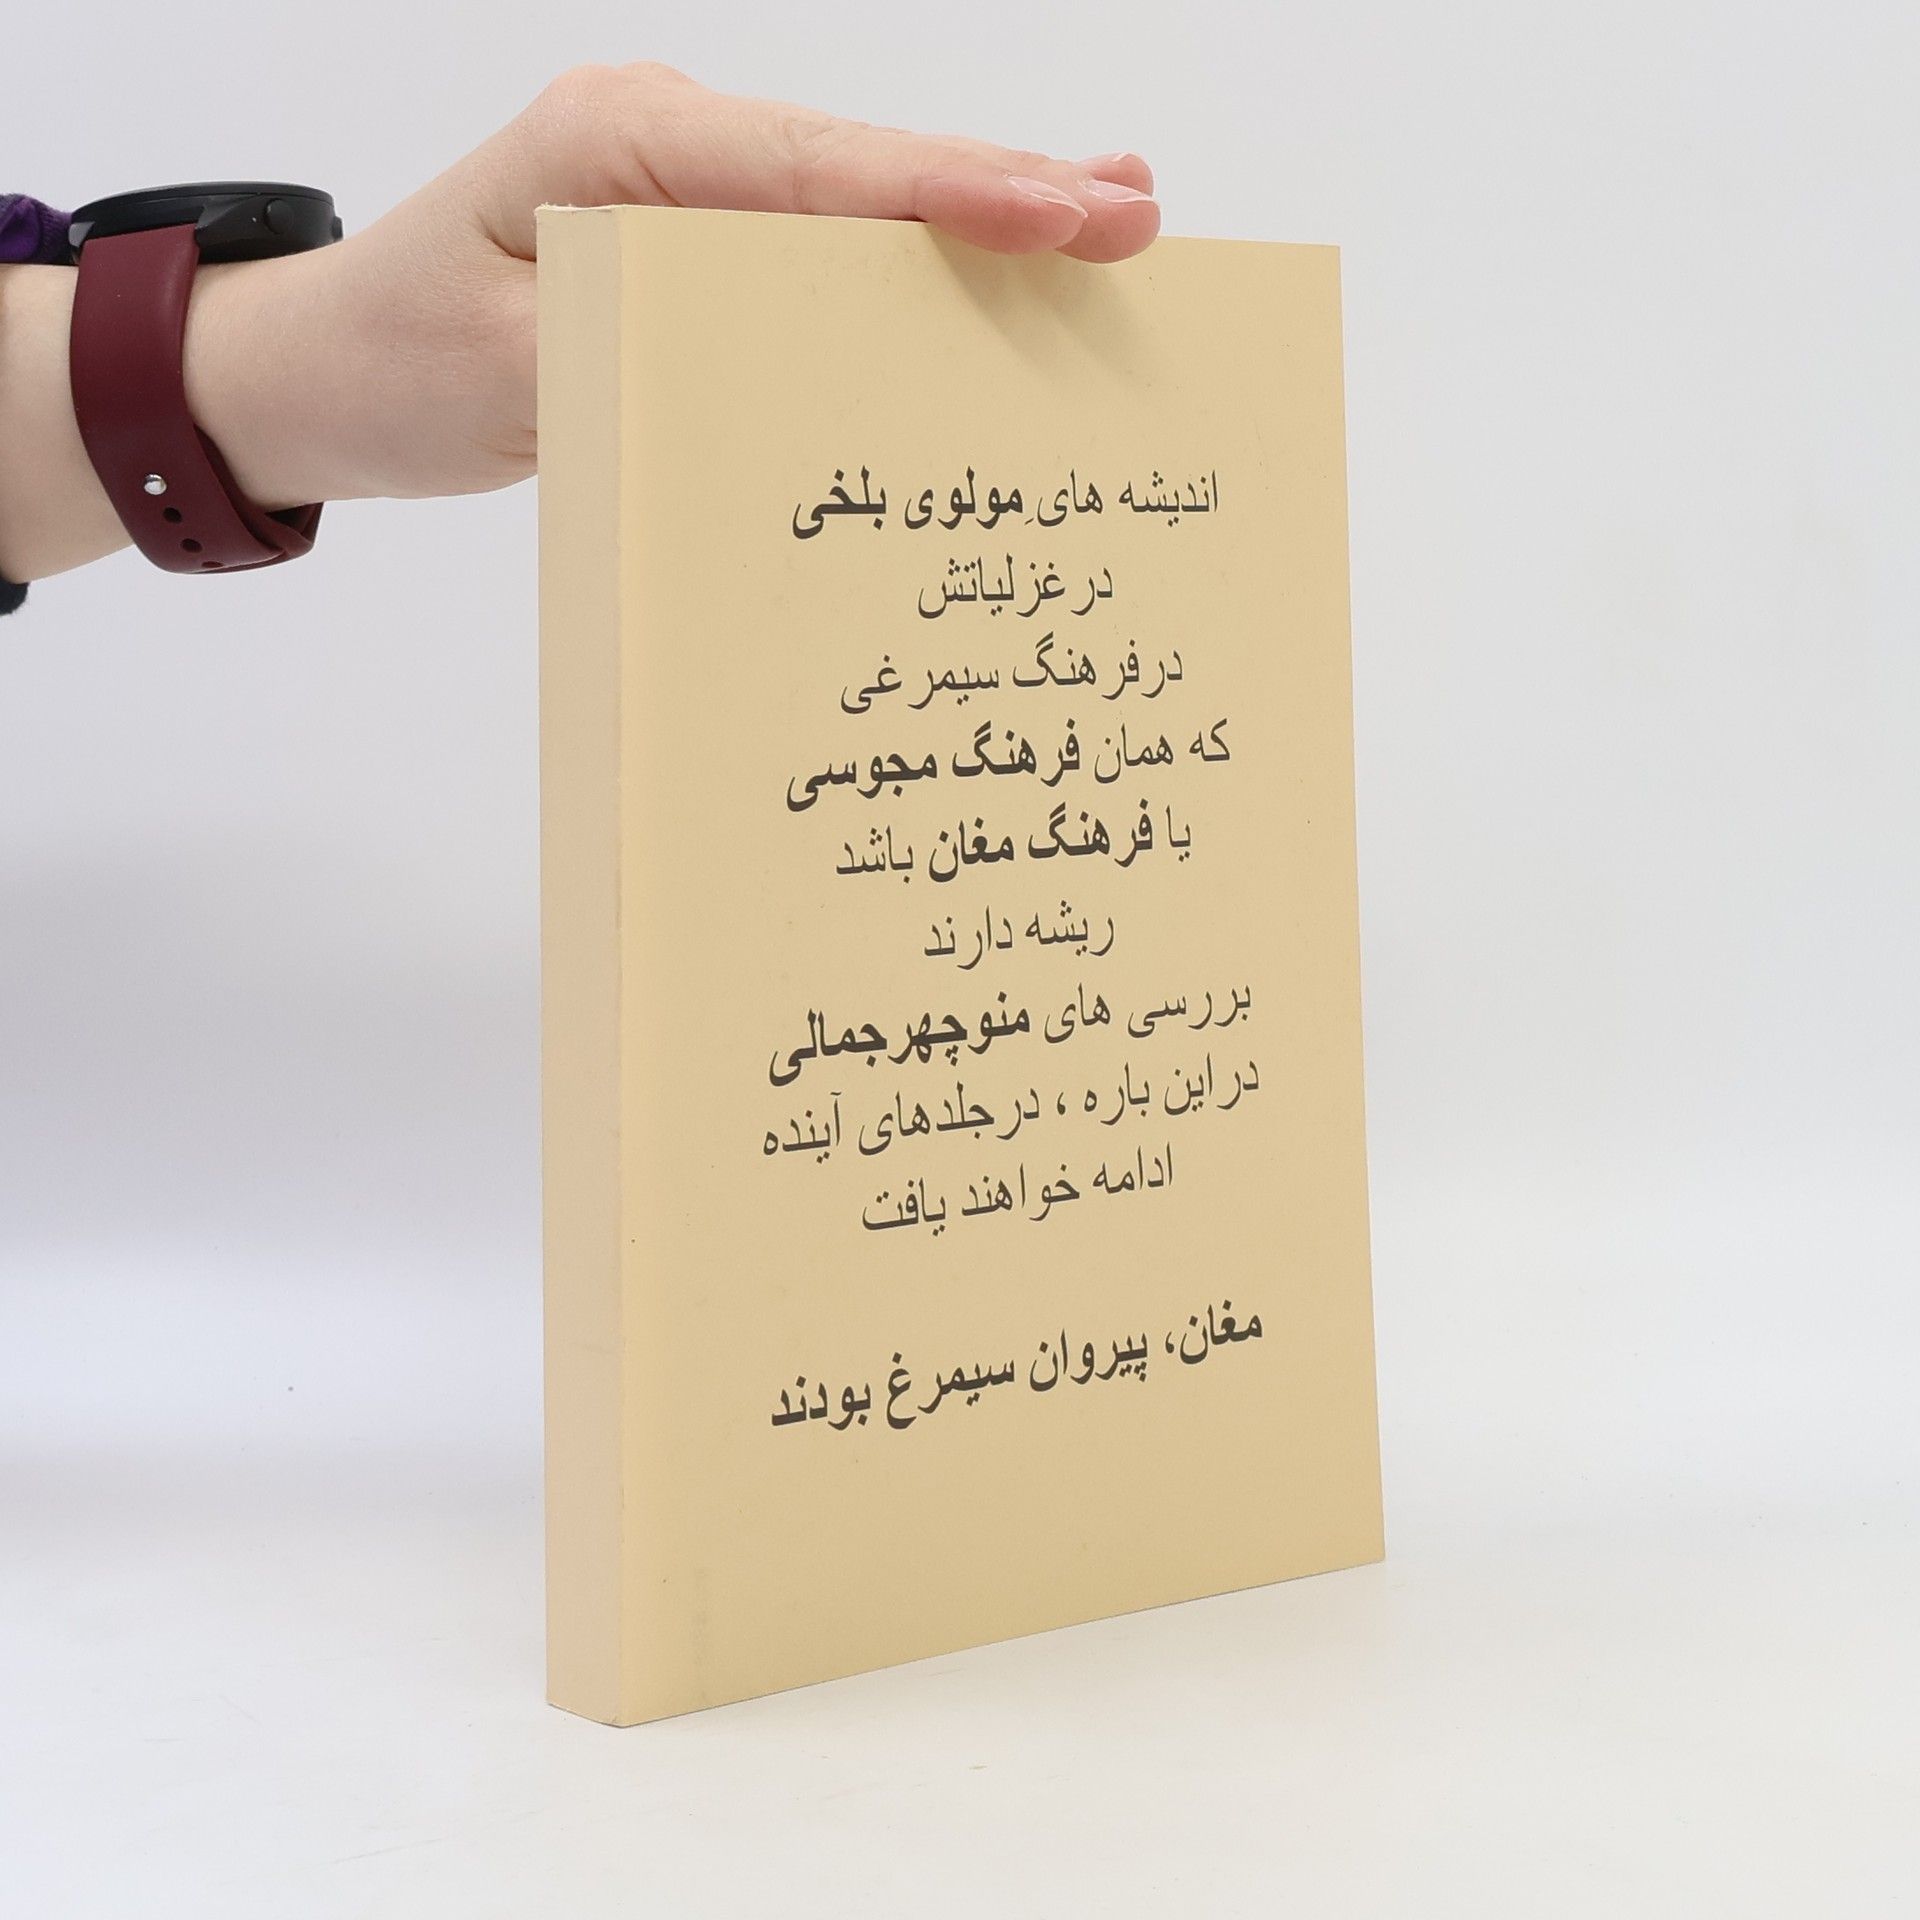 اندیشه های ِمولوی بلخی
در غزلیاتش
در فرهنگ سیمرغی
که همان فرهنگ مجوسی
یا فرهنگ مغان باشد
ریشه دارند
بررسی های منوچهرجمالی
دراین باره ، درجلدهای آینده
ادامه خواهند یافت
مغان، پیروان سیمرغ بودند